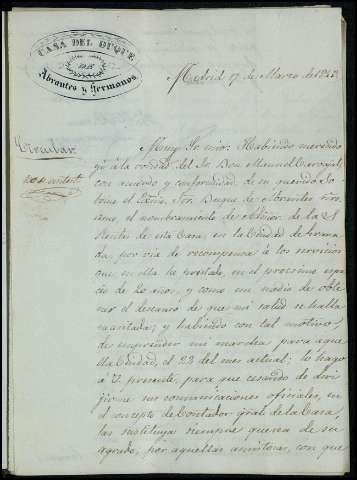 CASA DEL DUQUE
DE
Abrantes y Hermanos
Madrid 7 de Marzo de
Circular
Muy Sr. mio: Habiendo merecido
yo á la bondad del Sr. Don Manuel Carvajal,
con acuerdo y conformidad de su querido So
brino el Exmo. Sor. Duque de Abrantes
el nombramiento de de las
Rentas de esta Casa, en la Ciudad de Grana
da, por via de recompensa á los servicios
que en ella he prestado, en el procsimo espa
cio de 20 años, y como un medio de obte
ner el descanso de que mi salud se halla
necesitada; y habiendo con tal motivo,
de emprender mi marcha para aque
lla Ciudad, el 23 del mes actual; lo hago
á V. presente, para que cesando de diri
jirme sus comunicaciones oficiales, en
el concepto de Contador gral. de la Casa,
las sustituya siempre que sea de su
agrado, por aquellas amistosas, con que